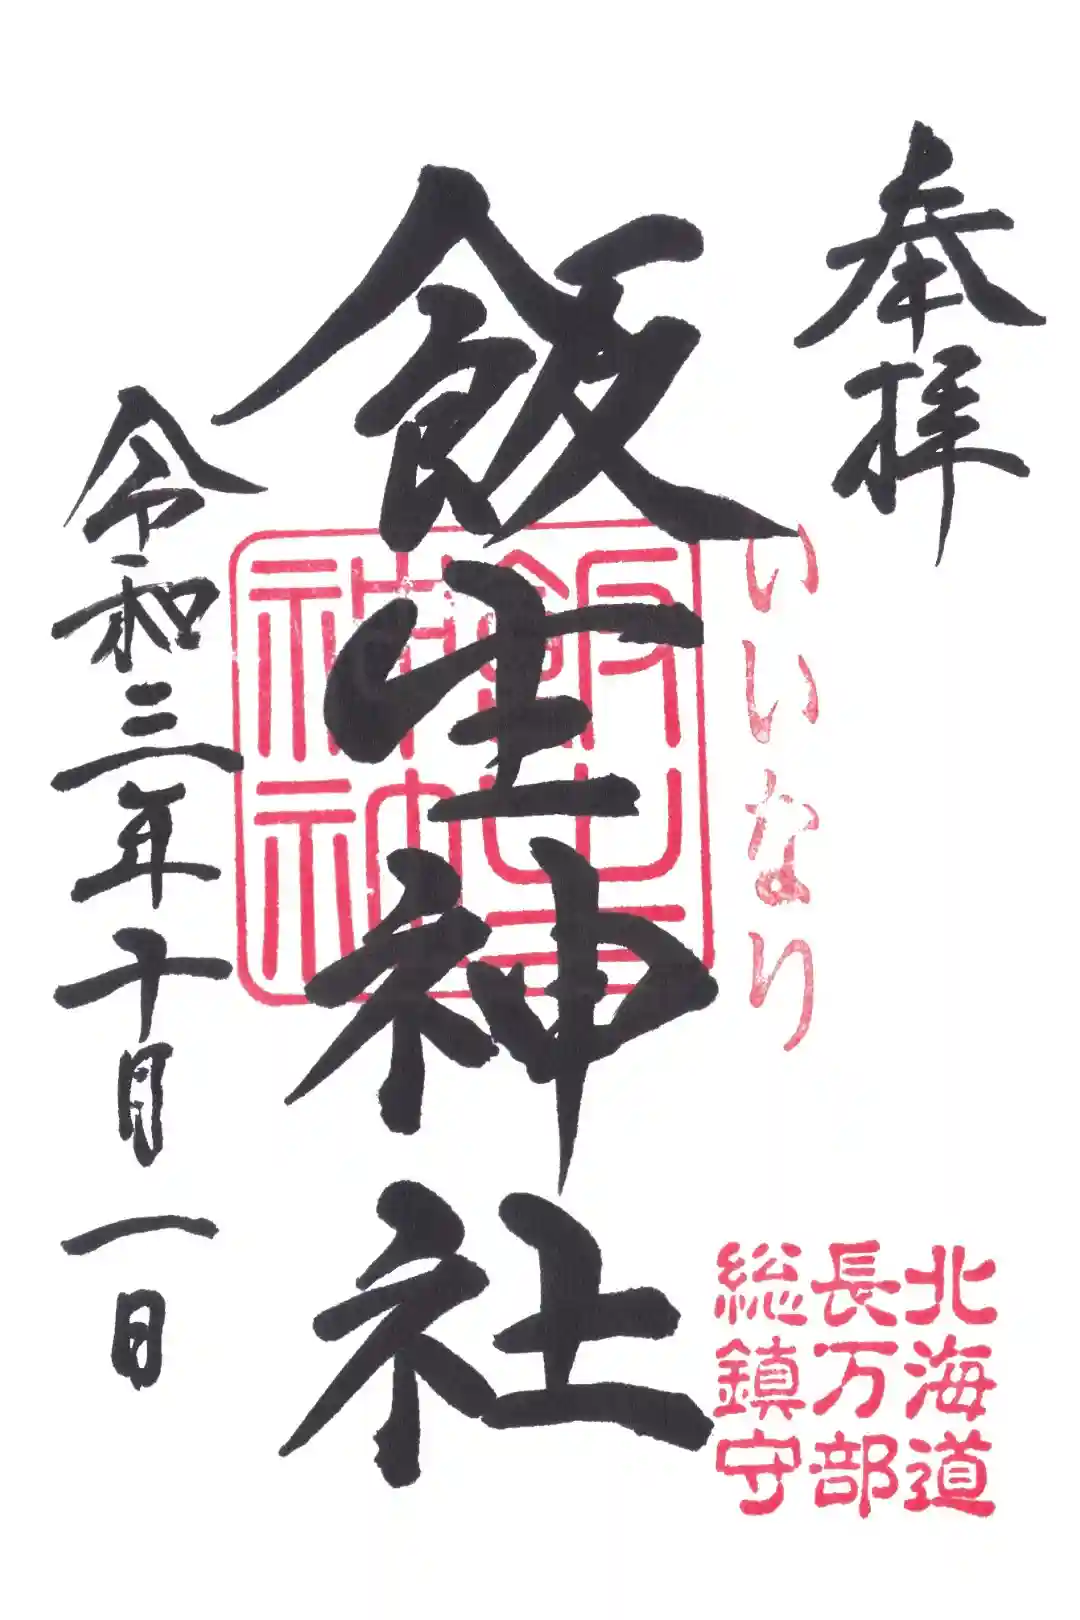 奉拝
いいなり
北海道
長万部
総鎮守
飯生神社
飯生
神社
令和三年十月一日